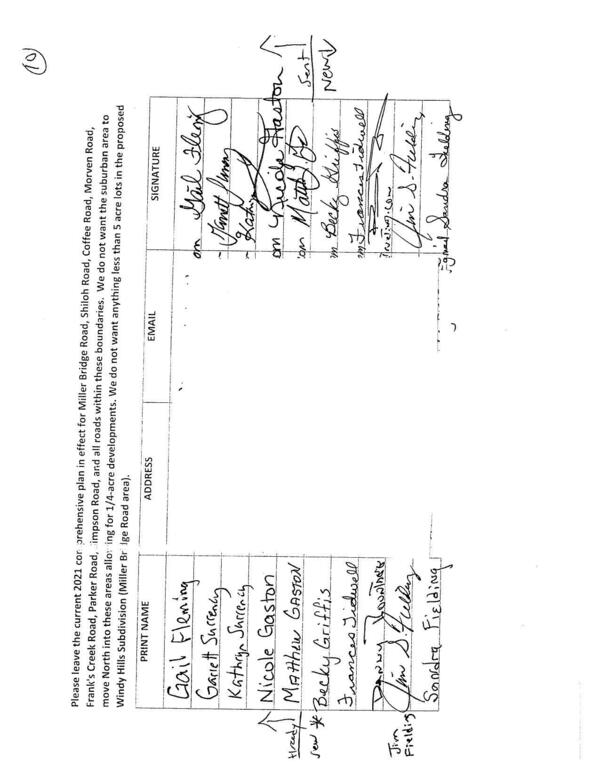 10
Please leave the current 2021 com prehensive plan in effect for Miller Bridge Road, Shiloh Road, Coffee Road, Morven Road,
Frank's Creek Road, Parker Road, Simpson Road, and all roads within these boundaries. We do not want the suburban area to
move North into these areas allowing for 1/4-acre developments. We do not want anything less than 5 acre lots in the proposed
Windy Hills Subdivision (Miller Bridge Road area).
PRINT NAME ADDRESS EMAIL SIGNATURE
Gail Fleming om Gail Fleming
Garrett Surrency
Kathryn Surrency
Nicole Gaston om Nicole Gaston
Already Matthew GASTON om Sent
new * Becky Griffis m Becky Griffis New
Frances Tidwell m Frances Tidwell
Danny
Jim Fielding Jim S. Fielding Jim S. Fielding
Sandra Fielding Sandra Fielding